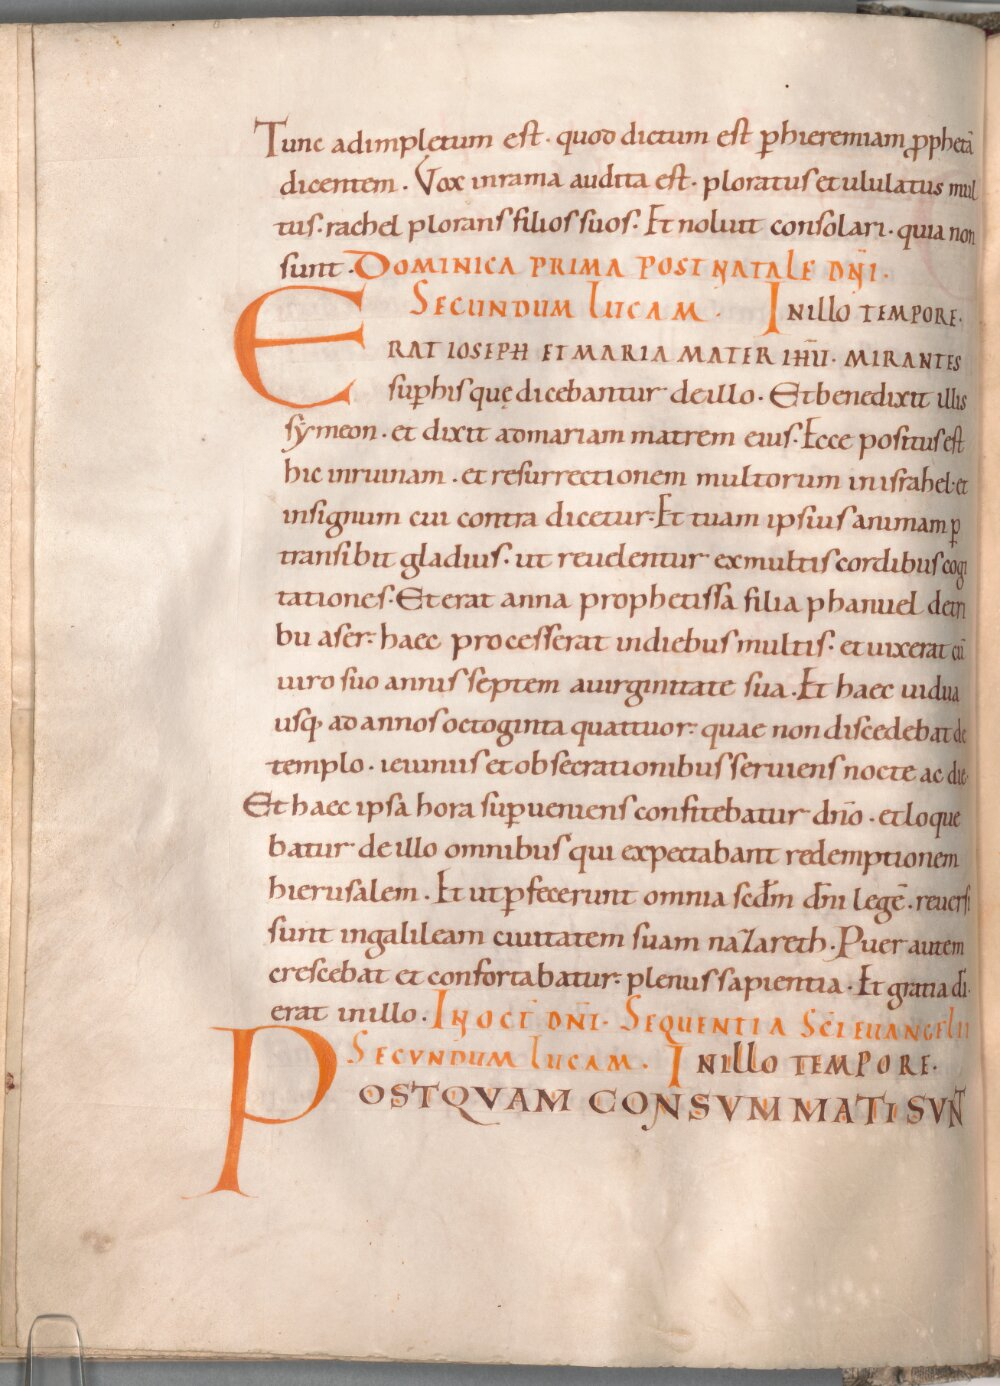 Tunc adimpletum est · quod dictum est ꝑhieremiam ꝓphetā
dicentem · Vox inrama audita est · ploratus et ululatus mul
tus · rachel plorans filios suos · Et noluit consolari · quia non
sunt · DOMINICA PRIMA POST NATALE DN̄I ·
SECUNDUM LUCAM · IN ILLO TEMPORE ·
ERAT IOSEPH ET MARIA MATER IHŪ · MIRANTES
suꝑ his quę dicebantur de illo · Et benedixit illis
sẏmeon · et dixit ad mariam matrem eius · Ecce positus est
hic inruinam · et resurrectionem multorum in israhel · et
insignum cui contra dicetur · Et tuam ipsius animam ꝑ
transibit gladius · ut reuelentur ex multis cordibus cogi
tationes · Et erat anna prophetissa filia phanuel de tri
bu aser · haec processerat in diebus multis · et uixerat cū
uiro suo annis septem a uirginitate sua · Et haec uidua
usq; ad annos octoginta quattuor · quae non discedebat de
templo · ieiuniis et obsecrationibus seruiens nocte ac die ·
Et haec ipsa hora suꝑueniens confitebatur dn̄o · et loque
batur de illo omnibus qui expectabant redemptionem
hierusalem · Et ut ꝑfecerunt omnia scd̄m dn̄i legē · reuersi
sunt in galileam ciuitatem suam nazareth · Puer autem
crescebat et confortabatur · plenus sapientia · Et gratia dī ·
erat in illo · IN OCT̄ DN̄I · SEQUENTIA SC̄I EUANGELII
SECVNDUM LUCAM · IN ILLO TEMPORE ·
POSTQVAM CONSVMMATI SVNT